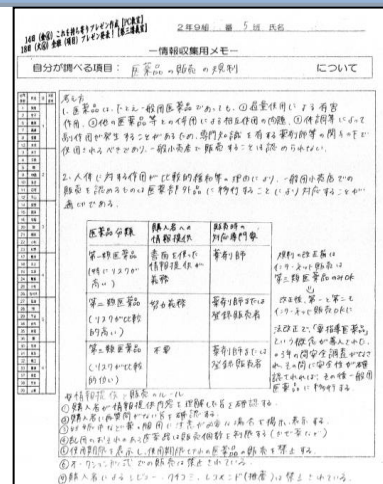 14日(金⑥)これを持ち寄りプレゼン作成【PC教室】
18日(火⑥)全班(項目)プレゼン発表!【第三講義室】
2年9組 番 5班 氏名
―情報収集用メモ―
自分が調べる項目: 医薬品の販売の規制 について
考え方
1. 医薬品は、たとえ一般用医薬品であっても、①過量使用による有害
作用、②他の医薬品等との併用による相互作用の問題、③体調等によって
副作用が発生することがあるため、専門知識を有する薬剤師等の関与の下で
使用されるべきであり、一般小売店で販売することは認められない。
2. 人体に対する作用が比較的緩和等の理由により、一般小売店での
販売を認めるものは医薬部外品に移行することにより対応することが
適切である。
医薬品分類 購入者への情報提供 販売時の対応専門家
第一類医薬品(特にリスクが高い) 書面を使った情報提供が義務 薬剤師
第二類医薬品(リスクが比較的高い) 努力義務 薬剤師または登録販売者
第三類医薬品(リスクが比較的低い) 不要 薬剤師または登録販売者
規制の改正前は
インターネット販売は
第三類医薬品のみOK
↓
改正後、第一と第二も
インターネット販売OKに
法改正で、「要指導医薬品」
という概念が導入され、
の3年の間安全調査がなさ
れ、その間に安全性が確
認されれば、その後一般用
医薬品に移行する
※情報提供と販売のルール
①購入者が情報提供内容を理解した旨を確認する。
②購入者に再質問がない旨を確認する。
③妊娠中など使用に注意が必要な点を掲示、表示する。
④乱用のおそれのある医薬品は販売個数を制限する(かぜ薬など)
⑤使用期限を表示し、使用期限切れの医薬品の販売を禁止する。
⑥オークション形式での販売は禁止されている。
⑦購入者によるレビュー、口コミ、レコメンド(推薦)は禁止されている。